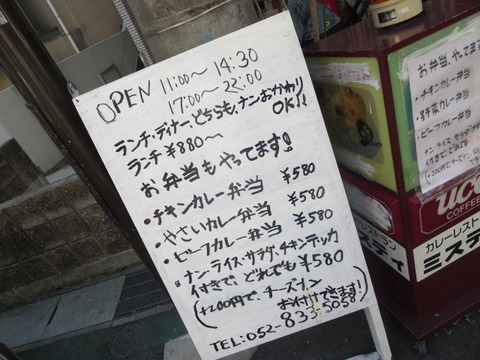 OPEN 11:00〜14:30
17:00〜22:00
ランチ・ディナー、どちらも、ナンおかわり
OK!!
ランチ¥880〜
お弁当もやってます!
・チキンカレー弁当 ¥580
・やさいカレー弁当 ¥580
・ビーフカレー弁当 ¥580
・ナン・ライス・サラダ・チキンティッカ
付きで、どれでも¥580
(+200円で、チーズナン
お付けできます!)
TEL:052-833-5058
お弁当、やってます
・チキンカレー弁当
・野菜カレー弁当
・ビーフカレー弁当
ナン・ライス・サラダ
付きで
+200円で
UCC
COFFEE
レストラン
カレーレスト
ミステ
スティ